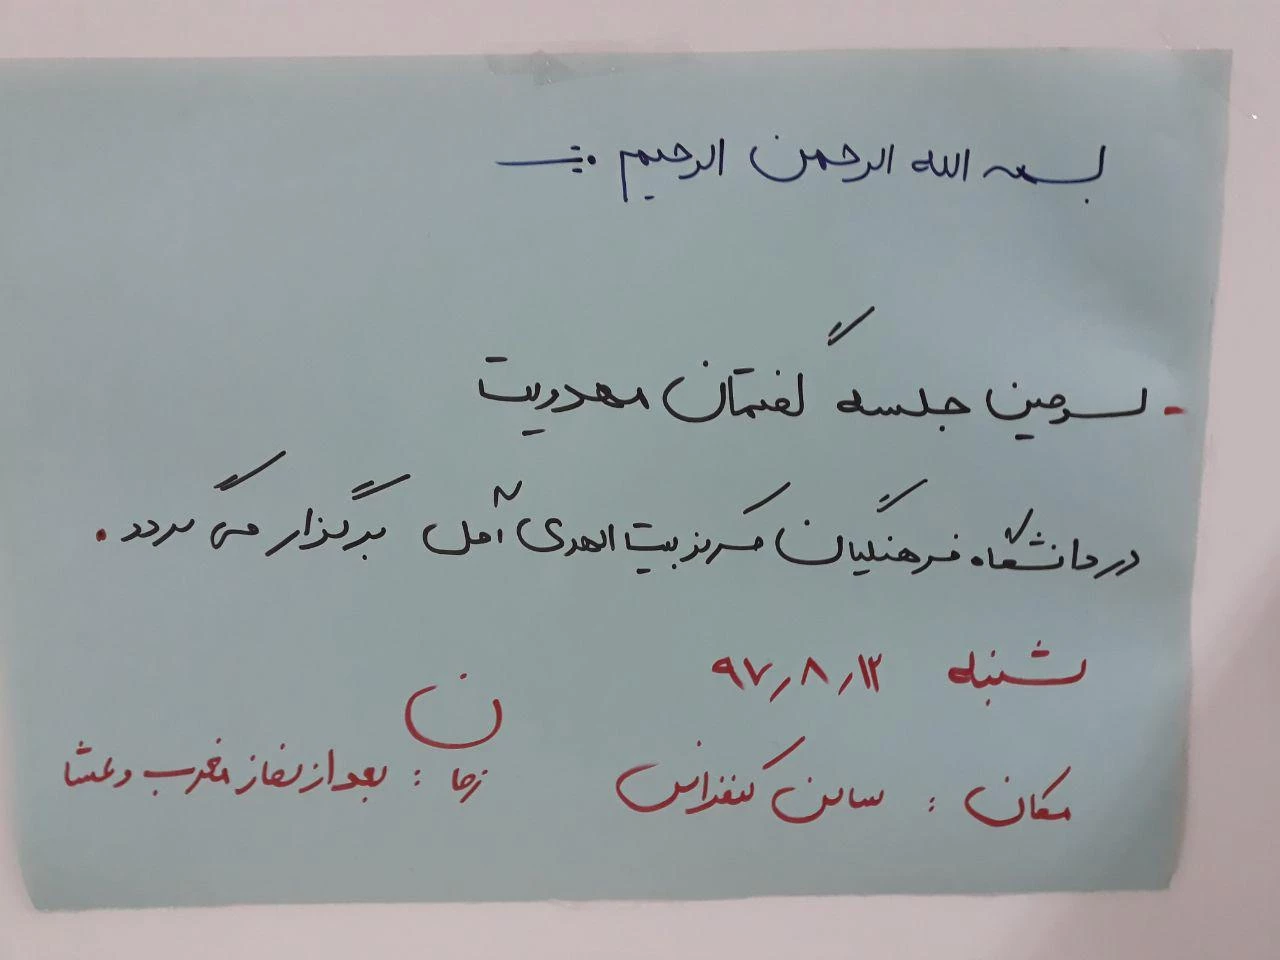 بسم الله الرحمن الرحیم
سومین جلسه گفتمان مهدویت
در دانشگاه فرهنگیان مرکز بیت الهدی آمل برگزار می گردد.
شنبه ۹۷/۸/۱۲
مکان : سالن کنفرانس
زمان : بعد از نماز مغرب و عشا